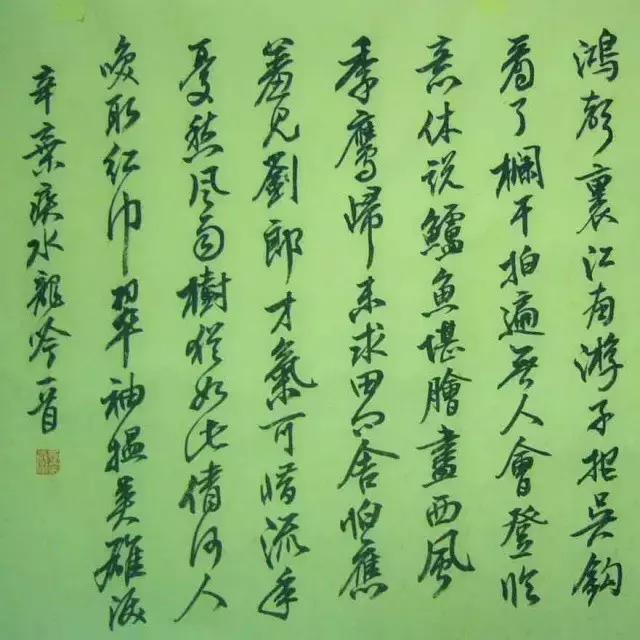 鴻聲裏江南游子把吳鈎
看了欄干拍遍无人會登臨
意休説鱸魚堪膾盡西風
季鷹歸未求田問舍怕應
羞見劉郎才氣可惜流年
憂愁風雨樹猶如此倩何人
喚取紅巾翠袖搵英雄淚
辛棄疾水龍吟一首